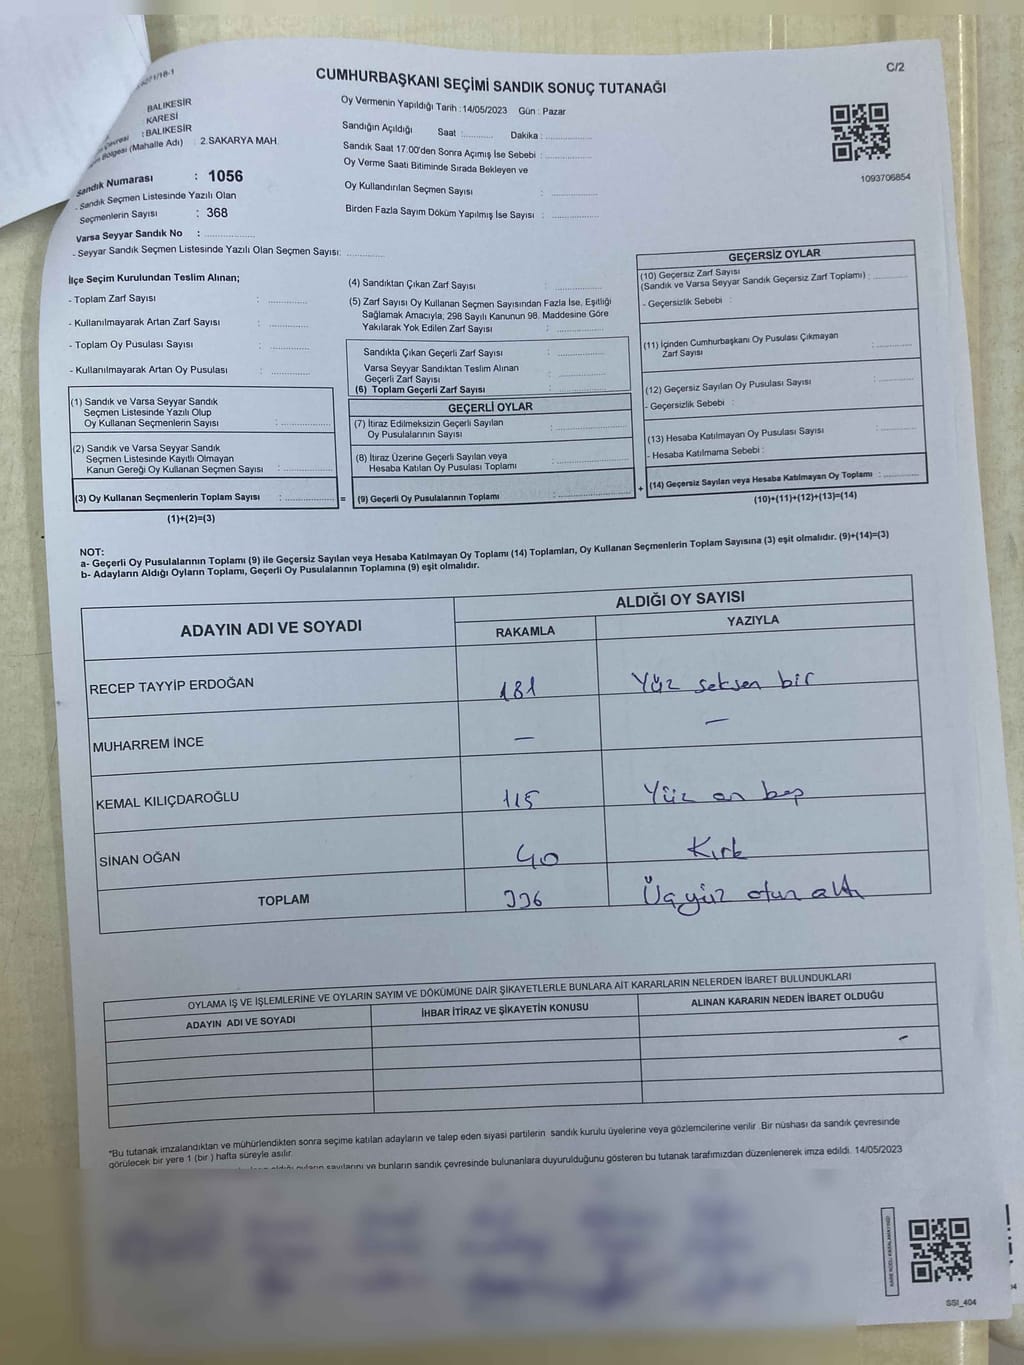 5271/18-1
C/2
CUMHURBAŞKANI SEÇİMİ SANDIK SONUÇ TUTANAĞI
BALIKESİR
KARESİ
: BALIKESİR
Bölgesi (Mahalle Adı) : 2.SAKARYA MAH.
Sandık Numarası : 1056
- Sandık Seçmen Listesinde Yazılı Olan
Seçmenlerin Sayısı : 368
Varsa Seyyar Sandık No :
- Seyyar Sandık Seçmen Listesinde Yazılı Olan Seçmen Sayısı:
Oy Vermenin Yapıldığı Tarih : 14/05/2023 Gün : Pazar
Sandığın Açıldığı Saat : Dakika :
Sandık Saat 17.00'den Sonra Açımış İse Sebebi :
Oy Verme Saati Bitiminde Sırada Bekleyen ve
Oy Kullandırılan Seçmen Sayısı :
Birden Fazla Sayım Döküm Yapılmış İse Sayısı :
1093706854
İlçe Seçim Kurulundan Teslim Alınan;
- Toplam Zarf Sayısı :
- Kullanılmayarak Artan Zarf Sayısı :
- Toplam Oy Pusulası Sayısı :
- Kullanılmayarak Artan Oy Pusulası :
(1) Sandık ve Varsa Seyyar Sandık
Seçmen Listesinde Yazılı Olup
Oy Kullanan Seçmenlerin Sayısı :
(2) Sandık ve Varsa Seyyar Sandık
Seçmen Listesinde Kayıtlı Olmayan
Kanun Gereği Oy Kullanan Seçmen Sayısı :
(3) Oy Kullanan Seçmenlerin Toplam Sayısı : =
(1)+(2)=(3)
(4) Sandıktan Çıkan Zarf Sayısı :
(5) Zarf Sayısı Oy Kullanan Seçmen Sayısından Fazla İse, Eşitliği
Sağlamak Amacıyla; 298 Sayılı Kanunun 98. Maddesine Göre
Yakılarak Yok Edilen Zarf Sayısı :
Sandıkta Çıkan Geçerli Zarf Sayısı :
Varsa Seyyar Sandıktan Teslim Alınan
Geçerli Zarf Sayısı :
(6) Toplam Geçerli Zarf Sayısı :
GEÇERLİ OYLAR
(7) İtiraz Edilmeksizin Geçerli Sayılan
Oy Pusulalarının Sayısı :
(8) İtiraz Üzerine Geçerli Sayılan veya
Hesaba Katılan Oy Pusulası Toplamı :
(9) Geçerli Oy Pusulalarının Toplamı : +
GEÇERSİZ OYLAR
(10) Geçersiz Zarf Sayısı
(Sandık ve Varsa Seyyar Sandık Geçersiz Zarf Toplamı) :
- Geçersizlik Sebebi :
(11) İçinden Cumhurbaşkanı Oy Pusulası Çıkmayan
Zarf Sayısı :
(12) Geçersiz Sayılan Oy Pusulası Sayısı :
- Geçersizlik Sebebi :
(13) Hesaba Katılmayan Oy Pusulası Sayısı :
- Hesaba Katılmama Sebebi :
(14) Geçersiz Sayılan veya Hesaba Katılmayan Oy Toplamı :
(10)+(11)+(12)+(13)=(14)
NOT:
a- Geçerli Oy Pusulalarının Toplamı (9) ile Geçersiz Sayılan veya Hesaba Katılmayan Oy Toplamı (14) Toplamları, Oy Kullanan Seçmenlerin Toplam Sayısına (3) eşit olmalıdır. (9)+(14)=(3)
b- Adayların Aldığı Oyların Toplamı, Geçerli Oy Pusulalarının Toplamına (9) eşit olmalıdır.
ADAYIN ADI VE SOYADI
ALDIĞI OY SAYISI
RAKAMLA YAZIYLA
RECEP TAYYİP ERDOĞAN 181 Yüz seksen bir
MUHARREM İNCE — —
KEMAL KILIÇDAROĞLU 115 Yüz on beş
SİNAN OĞAN 40 Kırk
TOPLAM 336 Üçyüz otuz altı
OYLAMA İŞ VE İŞLEMLERİNE VE OYLARIN SAYIM VE DÖKÜMÜNE DAİR ŞİKAYETLERLE BUNLARA AİT KARARLARIN NELERDEN İBARET BULUNDUKLARI
ADAYIN ADI VE SOYADI İHBAR İTİRAZ VE ŞİKAYETİN KONUSU ALINAN KARARIN NEDEN İBARET OLDUĞU
*Bu tutanak imzalandıktan ve mühürlendikten sonra seçime katılan adayların ve talep eden siyasi partilerin sandık kurulu üyelerine veya gözlemcilerine verilir. Bir nüshası da sandık çevresinde
görülecek bir yere 1 (bir ) hafta süreyle asılır.
oyların sayılarını ve bunların sandık çevresinde bulunanlara duyurulduğunu gösteren bu tutanak tarafımızdan düzenlenerek imza edildi. 14/05/2023
SSI_404